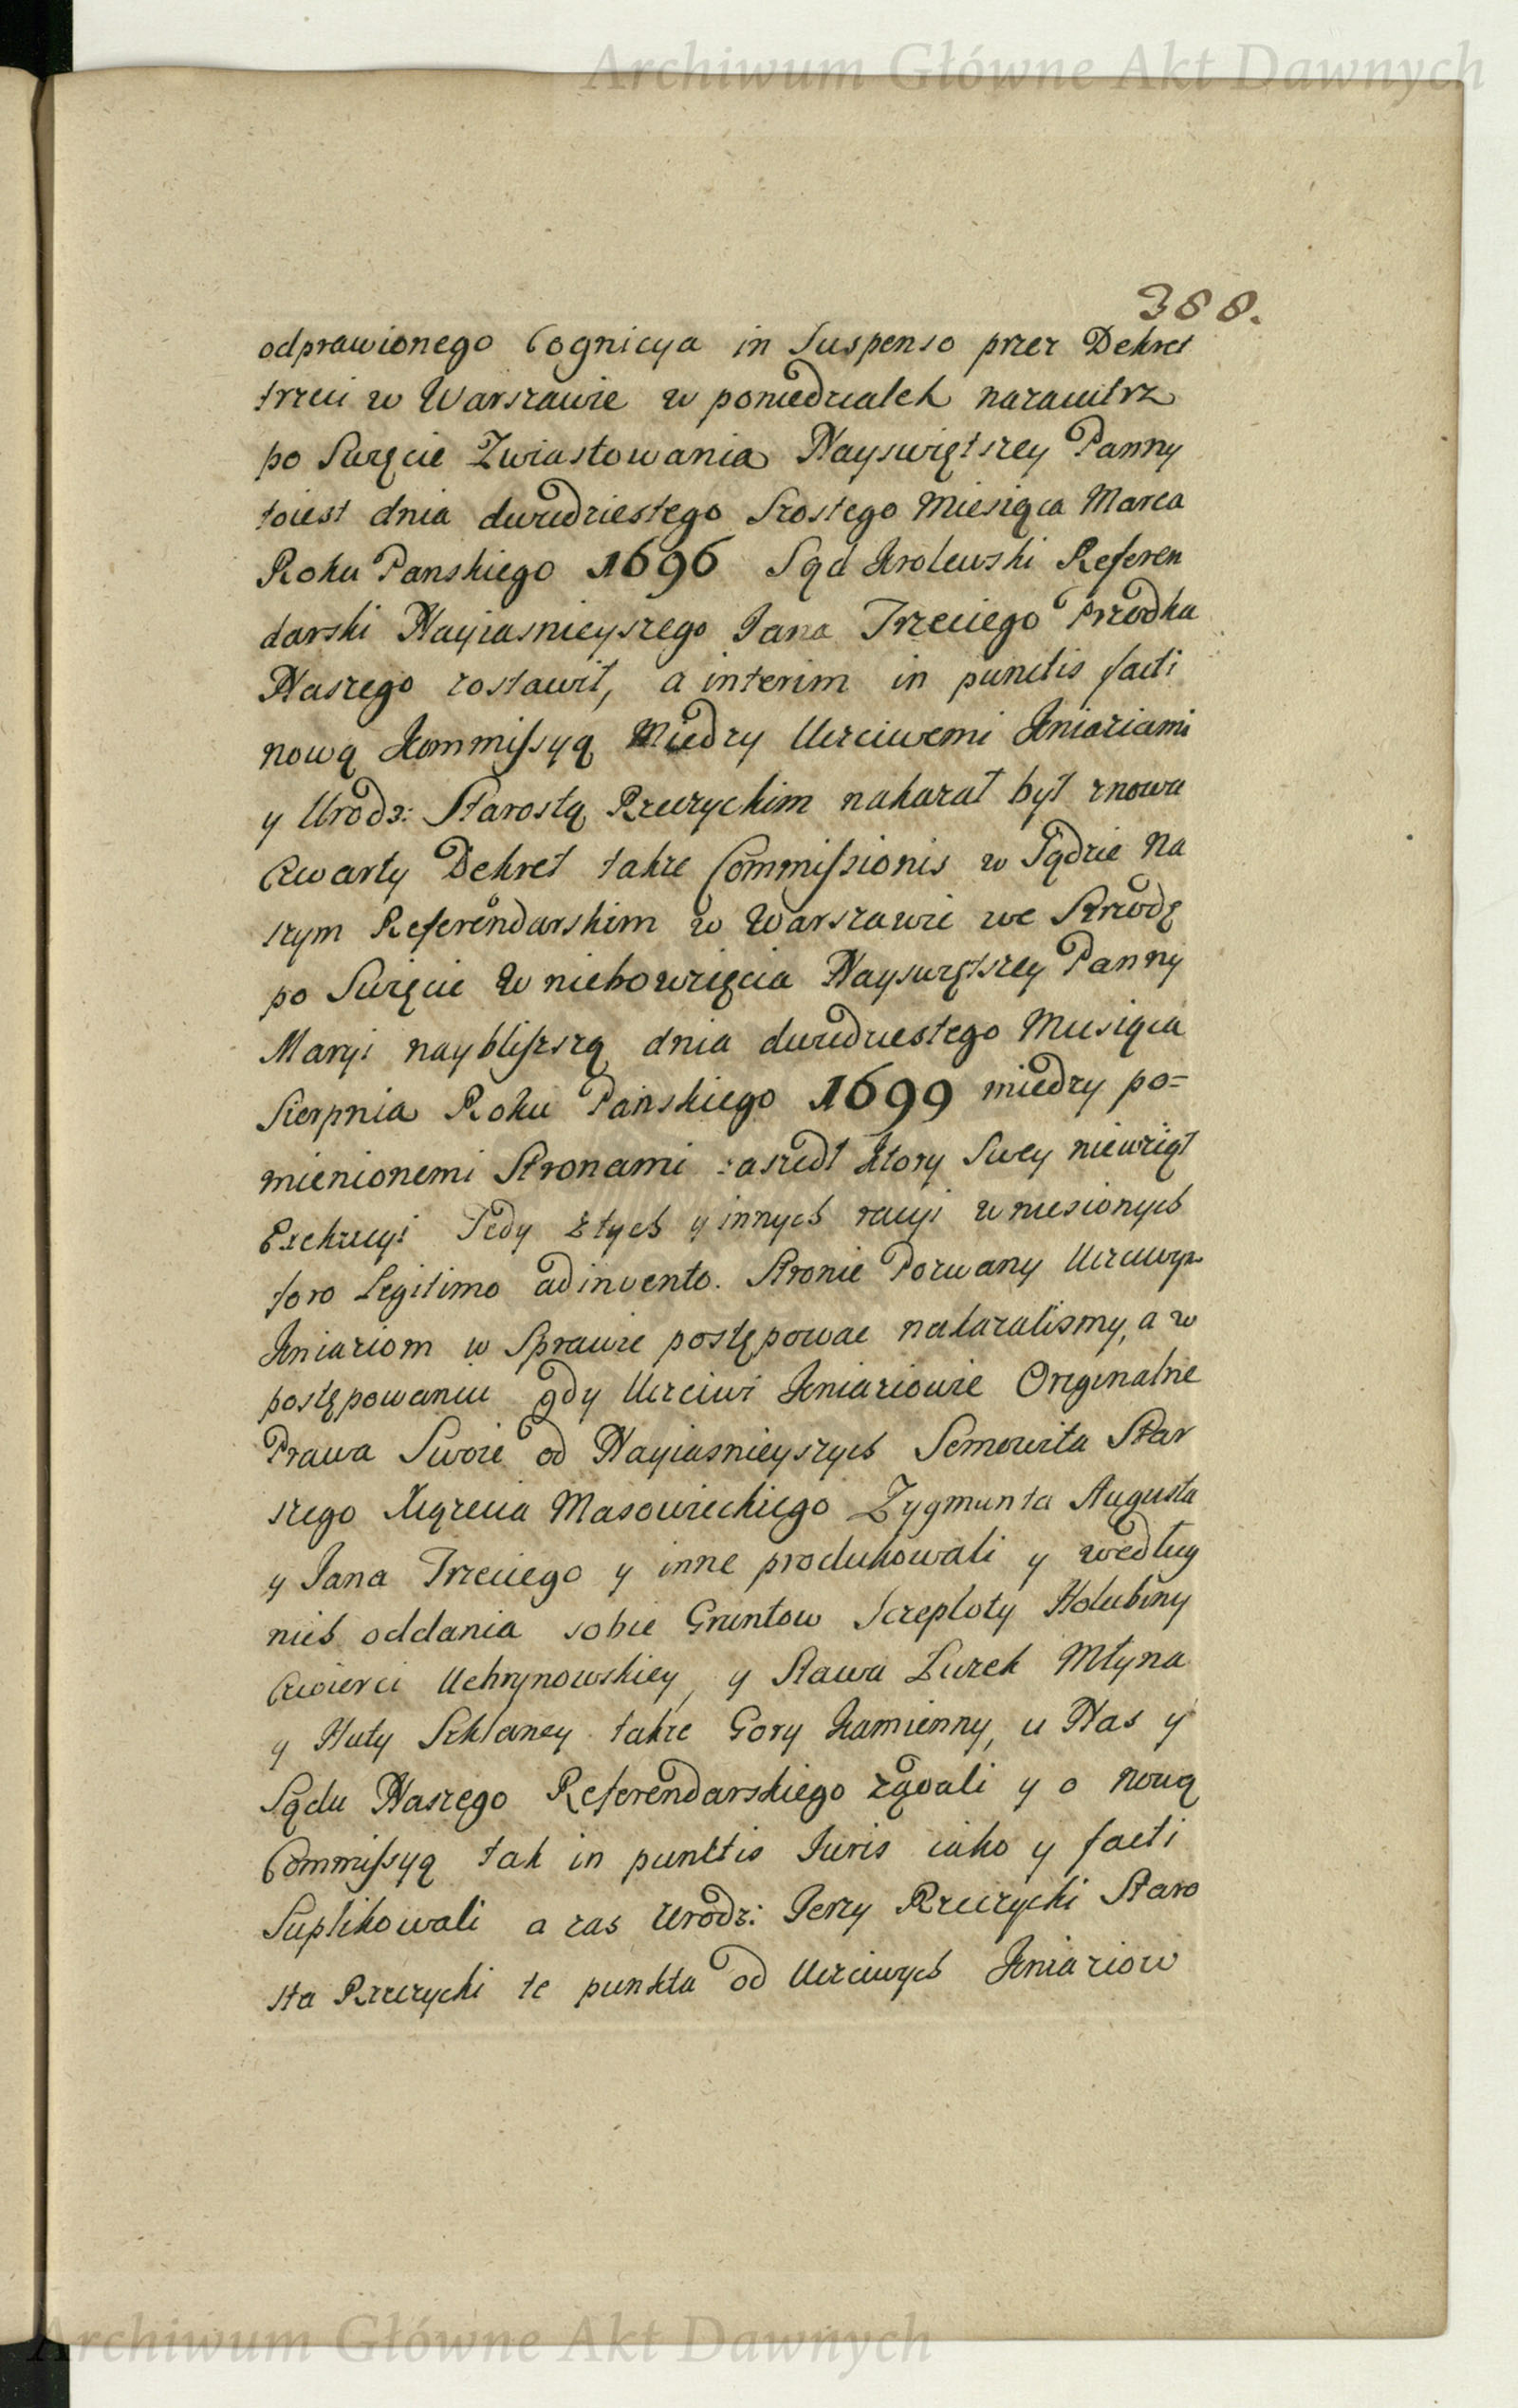 Archiwum Główne Akt Dawnych
388.
odprawionego Cognicya in Suspenso przez Dekret
trzeci w Warszawie w poniedziałek nazaiutrz
po Swięcie Zwiastowania Nayswiętszey Panny
toiest dnia dwudziestego Szostego Miesiąca Marca
Roku Panskiego 1696 Sąd Krolewski Referen
darski Nayiasnieyszego Jana Trzeciego Przodka
Naszego zostawił, a interim in punctis facti
nową Kommissyą Miedzy Uczciwemi Kniaziami
y Urodz: Starostą Rzeczyckim nakazał był znowu
Czwarty Dekret takze Commissionis w Sądzie Na
szym Referendarskim w Warszawie we Szrodę
po Swięcie Wniebowzięcia Nayswiętszey Panny
Maryi nayblisszą dnia dwudziestego Miesiąca
Sierpnia Roku Panskiego 1699 miedzy po=
mienionemi Stronami zaszedł ktory Swey niewziął
Exekucyi Tedy z tych y innych racyi wniesionych
foro Legitimo adinvento. Stronie Pozwany Uczciwym
Kniaziom w Sprawie postępowac nakazalismy, a w
postępowaniu gdy Uczciwi Kniaziowie Originalne
Prawa Swoie od Nayiasnieyszych Semowita Star
szego Xiązecia Mazowieckiego Zygmunta Augusta
y Jana Trzeciego y inne produkowali y według
nich oddania sobie Gruntow Szczeploty Holubiny
Cwierci Uchrynowskiey, y Stawu Zurek Młyna
y Huty Szklaney takze Gory Kamienny, u Nas y
Sądu Naszego Referendarskiego ządali y o nową
Commissyą tak in punktis Juris iako y facti
Suplikowali a zas Urodz: Jerzy Rzeczycki Staro
sta Rzeczycki te punkta od Uczciwych Kniaziow
Archiwum Główne Akt Dawnych